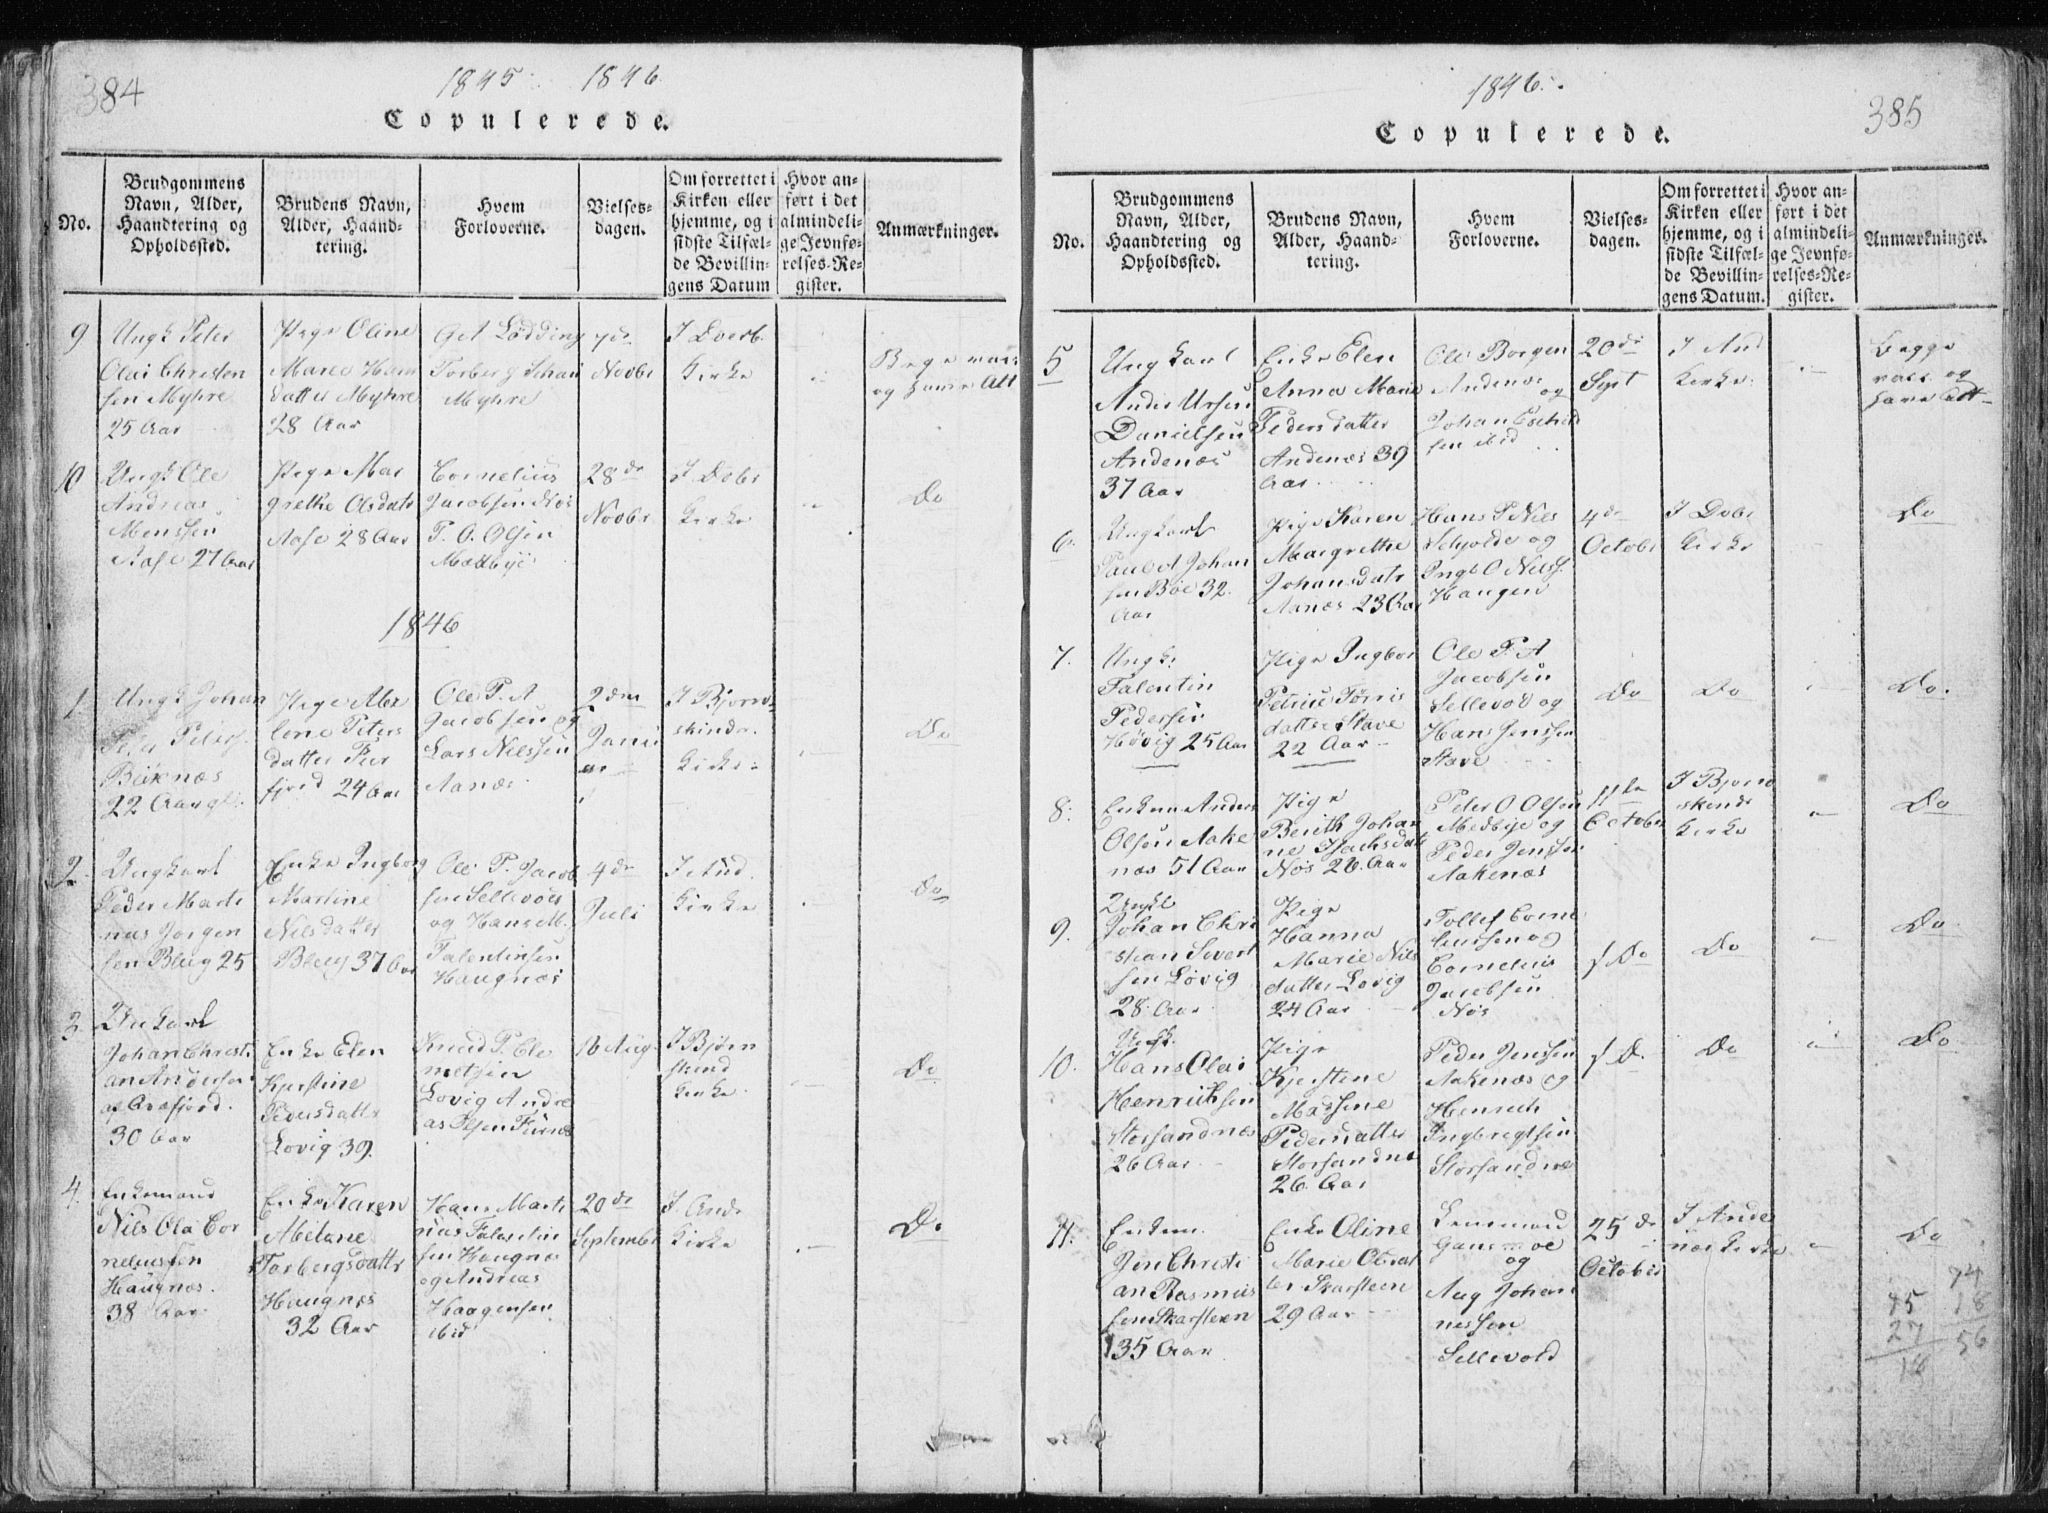 384
1845. 1846.
Copulerede.
No.
Brudgommens Navn, Alder, Haandtering og Opholdssted.
Brudens Navn, Alder, Haandtering.
Hvem Forloverne.
Vielsesdagen.
Om forrettet i Kirken eller hjemme, og i sidste Tilfælde Bevillingens Datum
Hvor anført i det almindelige Jevnførelses-Register.
Anmærkninger.
9
Ungk Peter
Olai Christen
sen Myhre
25 Aar
Pige Oline
Maren
datter Myhre
28 Aar
Lødding
Torberg
Myhre
Novbr
I Dverb.
Kirke
og have Att
10
Ungk Ole
Andreas
Monssen
Aase 27 Aar
Pige Mar
grethe Olsdatr
Aase 28 Aar
Cornelius
Jacobsen Nøs
P. O. Olsen
Medbye
28de
Novbr
I Dvbr
Kirke
Do
1846
1
Ungk Johan
Peter Peters.
Biiknæs
22 Aar
Pige Alex
lene Peters
datter Fiir
fjord 24 Aar
Ole P. A
Jacobsen og
Lars Nilssen
Aanæs
2den
Janu
ar
I Bjorn
skinds
Kirke
Do
2.
Ungkarl
Peder Marti
nus Jorgen
sen Bleig 25
Enke Ingborg
Martine
Nilsdatter
Bleig 37 Aar
Ole P. Jacob
sen Sellevold
og Hans M.
Falentinsen
Haugnæs
4de
Juli
I And.
Kirke
Do
3.
Unkarl
Johan Christi
an Andersen
af Aaefjord.
30 Aar
Enke Elen
Kjerstine
Pedersdattr
Lovig 39.
Knud P. Cle
metsen
Lovig Andre
as Olsen Fiirnæs
16 Aug.
I Bjørn
skind
Kirke
Do
4.
Enkemand
Nils Ola Cor
neliussen
Haugnæs
38 Aar
Enke Karen
Milene
Torbergsdattr
Haugnæs
32 Aar
Hans Marti
nus Falentin
sen Haugnæs
og Andreas
Haagensen
ibid
20de
September
I Ands
Kirke
Do
1846.
385
Copulerede.
No.
Brudgommens Navn, Alder, Haandtering og Opholdssted.
Brudens Navn, Alder, Haandtering.
Hvem Forloverne.
Vielsesdagen.
Om forrettet i Kirken eller hjemme, og i sidste Tilfælde Bevillingens Datum.
Hvor anført i det almindelige Jevnførelses-Register.
Anmærkninger.
5
Ungkarl
Anders Ursin
Danielsen
Andenæs
37 Aar
Enke Elen
Anna Marie
Pedersdatter
Andenæs 39
Aar
Ole Borgen
Andenæs
og
Johan Eschild
sen ibid
20de
Sept
I And
Kirke.
Begge
vacc og
have Att
6.
Ungkarl
Paul A Johan
sen Bøe 32.
Aar
Pige Karen
Margrethe
Johansdatr
Aanæs 23 Aar
Hans P Nils
Schjolde og
Ingb O Nilss.
Haugen
4de
Octobr
I Dvbr
Kirke
Do
7.
Ungk.
Falentin
Pedersen
Høvig 25 Aar
Pige Ingbor
Petrice Torris
datter Stave
22 Aar
Ole P. A
Jacobsen
Sellevold og
Hans Jenssen
Stave
Do
Do
Do.
8.
Enkem Anders
Olsen Aake
næs 51 Aar
Pige
Berith Johan
ne Isachsdatr
Nøs 26. Aar
Peter O Olsen
Medbye og
Peder Jenssen
Aakenæs
11te
October
I Bjorn
skinds
Kirke
Do
9.
Ungkl
Johan Chri
stian Sivert
sen Lovig
28. Aar
Pige
Hanna
Marie Nils
datter Lovig
24 Aar
Tollef Corne
liussen og
Cornelius
Jacobsen
Nøs
Do
Do
Do.
10.
Ungk.
Hans Olai
Henrichsen
Storsandnæs
26 Aar
Pige
Kjerstene
Massine
Pedersdatter
Storsandnæ
26. Aar
Peder Jenssen
Aakenæs og
Henrich
Ingbregtsen
Storsandnæs
Do.
Do
Do
11.
Enkem.
Jen Christi
an Rasmus
sen Skarsteen
35 Aar
Enke Oline
Marie Olsdat
ter Skarsteen
29 Aar
Lensmand
og
Aug Johan
nessen
Sellevold
25de
October
I Ande
næs Kirke
Do
74
18
56
45
27
18